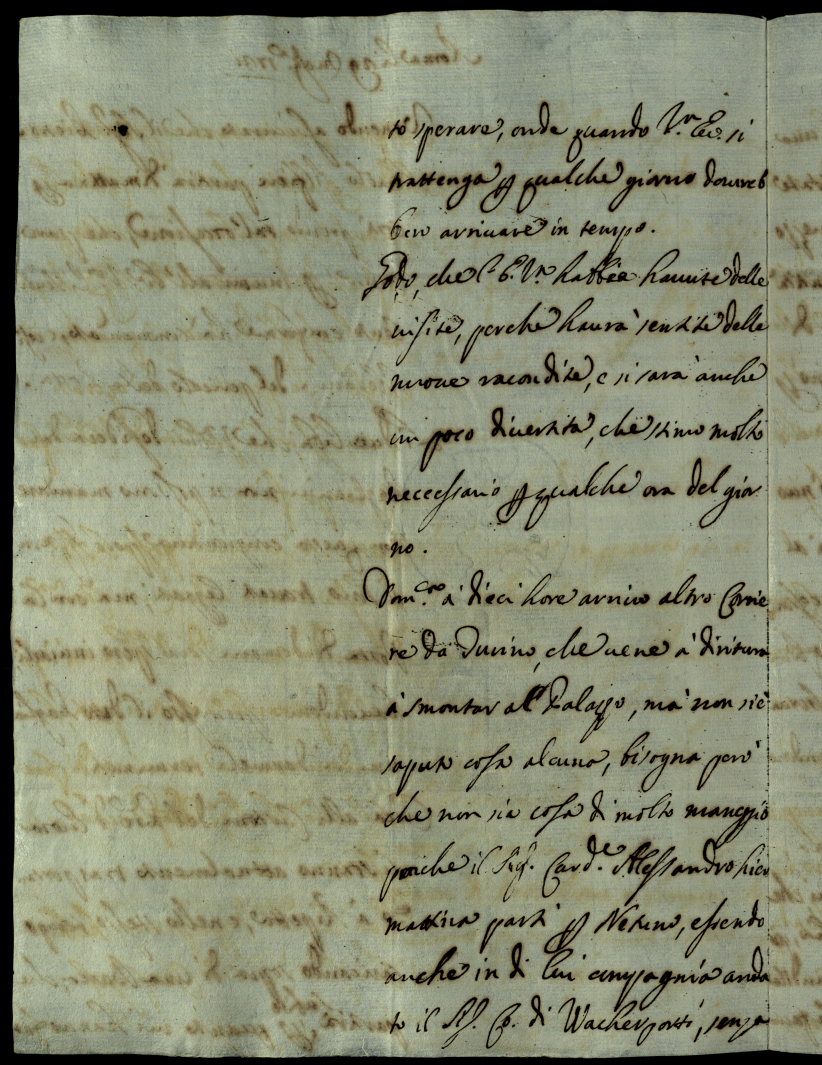 to sperare, onde quando V.ra Ecc. si
trattenga p qualche giorno dovreb
bero arrivare in tempo.
Godo, che l'E. V.ra habbia havute delle
visite, perche haurà sentite delle
nuove racondite, e si sarà anche
un poco divertita, che stimo molto
necessario p qualche ora del gior
no.
Dom.ca à dieci hore arrivo altro Corrie
re da Turino, che vene à diritura
à smontar al Palazzo, mà non si è
saputo cosa alcuna, bisogna però
che non sia cosa di molto maneggio
poiche il Sig. Card.e Alessandro hier
mattina partì p Netuno, essendo
anche in di lui compagnia anda
to il S. C. di Wacherporti, senza